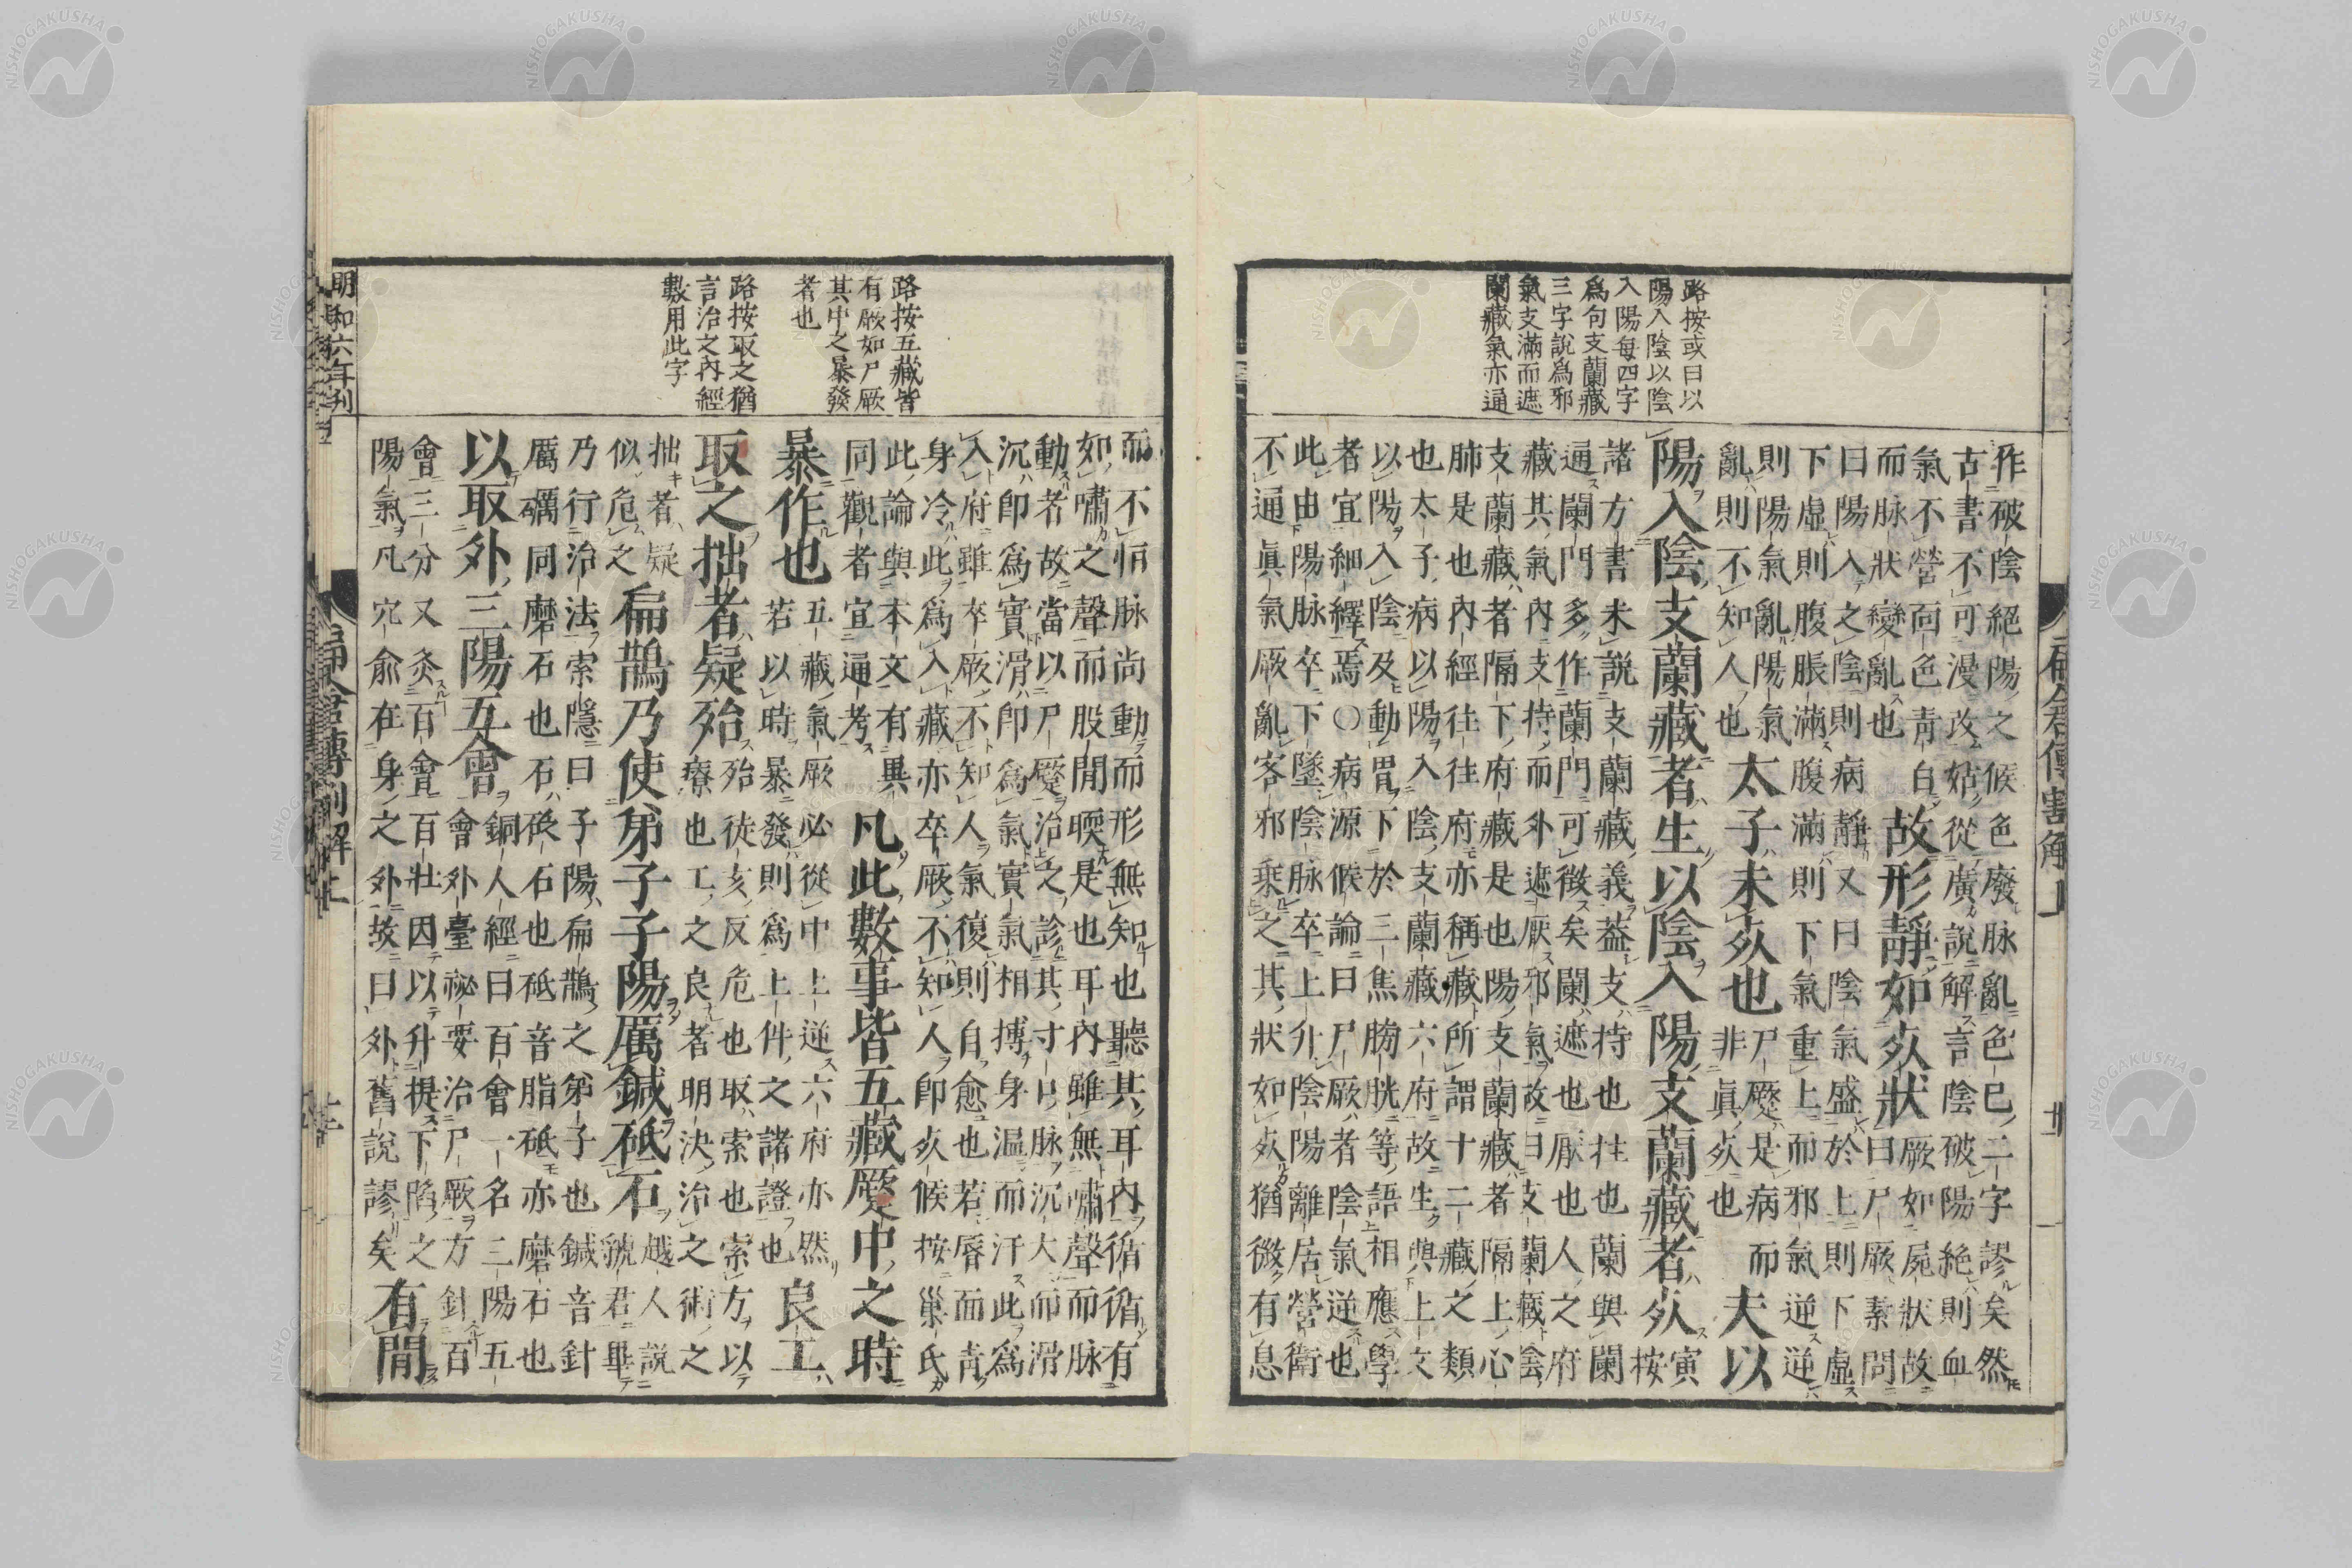 路按或曰以
陽入陰以陰
入陽每四字
爲句支蘭藏
三字說爲邪
氣支滿而遮
闌藏氣亦通
作破陰絕陽之候色廢脉亂色已二字謬矣然
古書不可漫改姑從廣說解言陰破陽絕則血
氣不營面色靑白故形靜如死狀厥如屍狀故
而脉狀變亂也曰尸厥素問
曰陽入之陰則病靜又曰陰氣盛於上則下虛
下虛則腹脹滿腹滿則下氣重上而邪氣逆逆
則陽氣亂陽氣太子未死也尸蹷是病而夫以
亂則不知人也非眞死也
陽入陰支蘭藏者生以陰入陽支蘭藏者死寅按
諸方書未說支蘭藏義蓋支持也拄也蘭與闌
通闌門多作蘭門可徵矣闌遮也厭也人之府
藏其氣內支持而外遮厥邪氣故曰支蘭藏陰
支蘭藏者隔下府藏是也陽支蘭藏者隔上心
肺是也內經往往府亦稱藏所謂十二藏之類
也太子病以陽入陰支蘭藏六府故生與上文
以陽入陰及動胃下於三焦膀胱等語相應學
者宜細繹焉〇病源候論曰尸厥者陰氣逆也
此由陽脉卒下墜陰脉卒上升陰陽離居營衛
不通眞氣厥亂客邪乗之其狀如死猶微有息
路按五藏皆
有厥如尸厥
其中之暴發
者也
路按取之猶
言治之內經
數用此字
而不恒脉尚動而形無知也聽其耳內循循有
如嘯之聲而股閒暖是也耳內雖無嘯聲而脉
動者故當以尸蹷治之診其寸口脉沉大而滑
沉卽爲實滑卽爲氣實氣相搏身温而汗此爲
入府雖卒厥不知人氣復則自愈也若唇面靑
身冷此爲入藏亦卒厥不知人卽死候按巢氏
此論與本文有異凡此數事皆五藏蹷中之時
同觀者宜通考
暴作也五藏氣厥必從中上逆六府亦然良工
若以時暴發則爲上件之諸證也
取之拙者疑殆殆徒亥反危也取索也索方以
療也工之良者明決治之術之
拙者疑扁鵲乃使弟子子陽厲鍼砥石越人說
似危之虢君畢
乃行治法索隱曰子陽扁鵲之弟子也鍼音針
厲礪同磨石也石砭石也砥音脂砥亦磨石也
以取外三陽五會銅人經曰百會一名三陽五
會外臺祕要治尸厥方針百
會三分又灸百會百壯因以升提下陷之
陽氣凡穴俞在身之外故曰外舊說謬矣有閒
明和六年刊